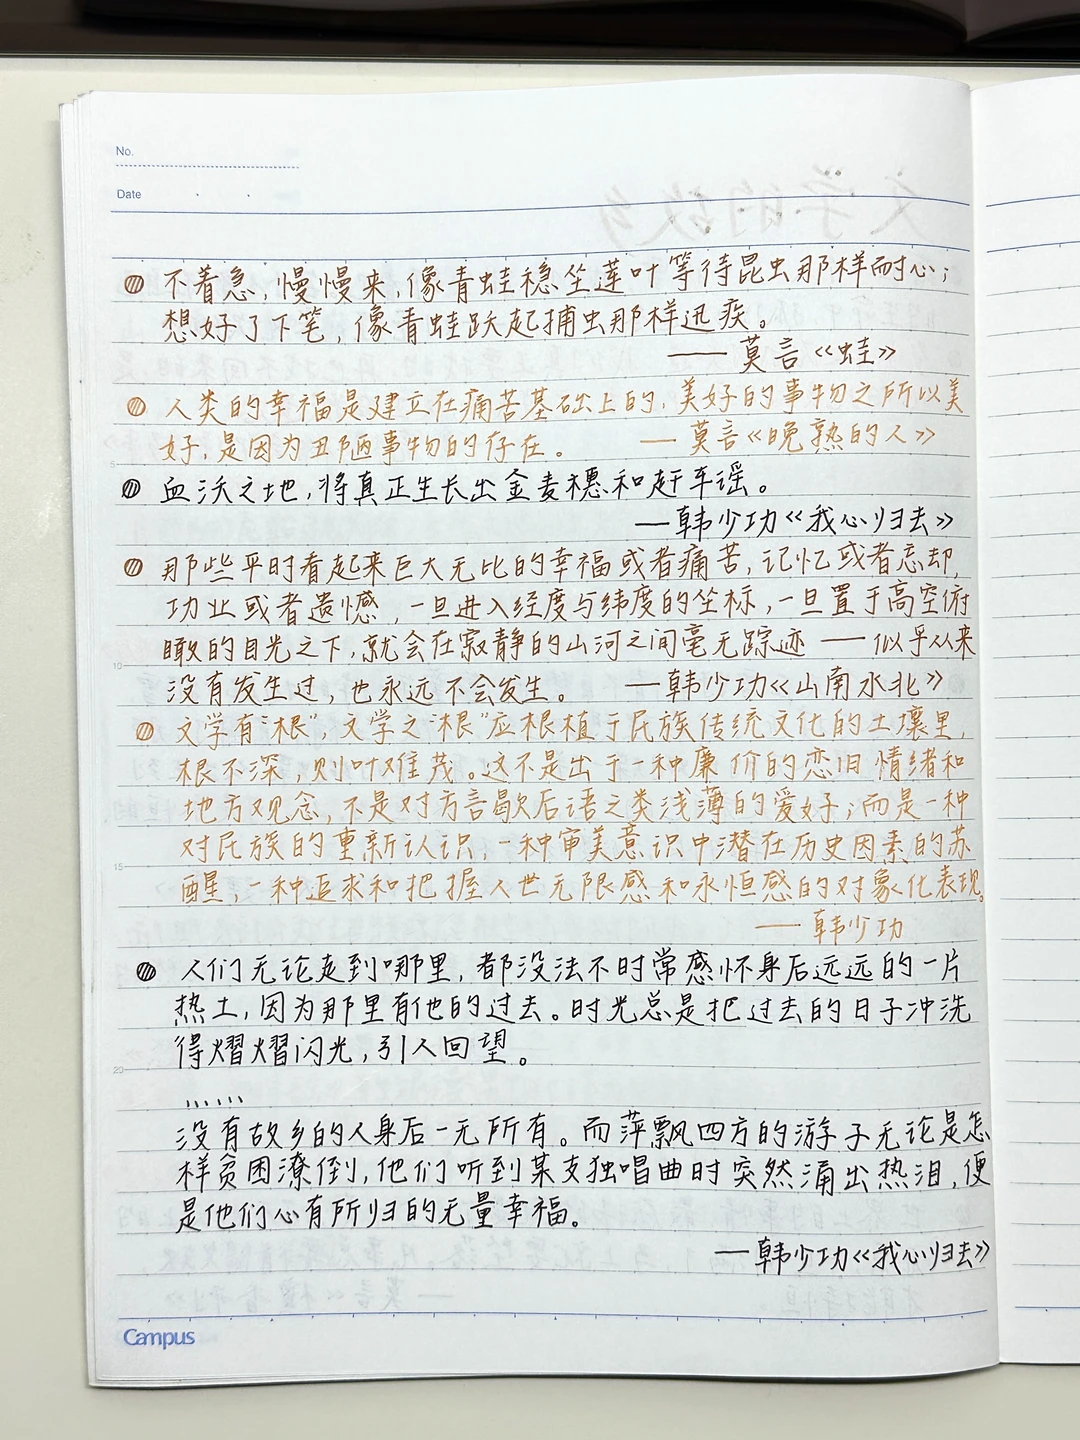 No.
Date
文学的故乡
不着急,慢慢来,像青蛙稳坐莲叶等待昆虫那样耐心;
想好了下笔,像青蛙跃起捕虫那样迅疾。
——莫言《蛙》
人类的幸福是建立在痛苦基础上的,美好的事物之所以美
好,是因为丑陋事物的存在。 —莫言《晚熟的人》
血沃之地,将真正生长出金麦穗和赶车谣。
—韩少功《我心归去》
那些平时看起来巨大无比的幸福或者痛苦,记忆或者忘却,
功业或者遗憾,一旦进入经度与纬度的坐标,一旦置于高空俯
瞰的目光之下,就会在寂静的山河之间毫无踪迹——似乎从来
没有发生过,也永远不会发生。 —韩少功《山南水北》
文学有“根”,文学之“根”应根植于民族传统文化的土壤里,
根不深,则叶难茂。这不是出于一种廉价的恋旧情绪和
地方观念,不是对方言歇后语之类浅薄的爱好;而是一种
对民族的重新认识,一种审美意识中潜在历史因素的苏
醒,一种追求和把握人世无限感和永恒感的对象化表现。
——韩少功
人们无论走到哪里,都没法不时常感怀身后远远的一片
热土,因为那里有他的过去。时光总是把过去的日子冲洗
得熠熠闪光,引人回望。
……
没有故乡的人身后一无所有。而萍飘四方的游子无论是怎
样贫困潦倒,他们听到某支独唱曲时突然涌出热泪,便
是他们心有所归的无量幸福。
—韩少功《我心归去》
5
10
15
20
Campus